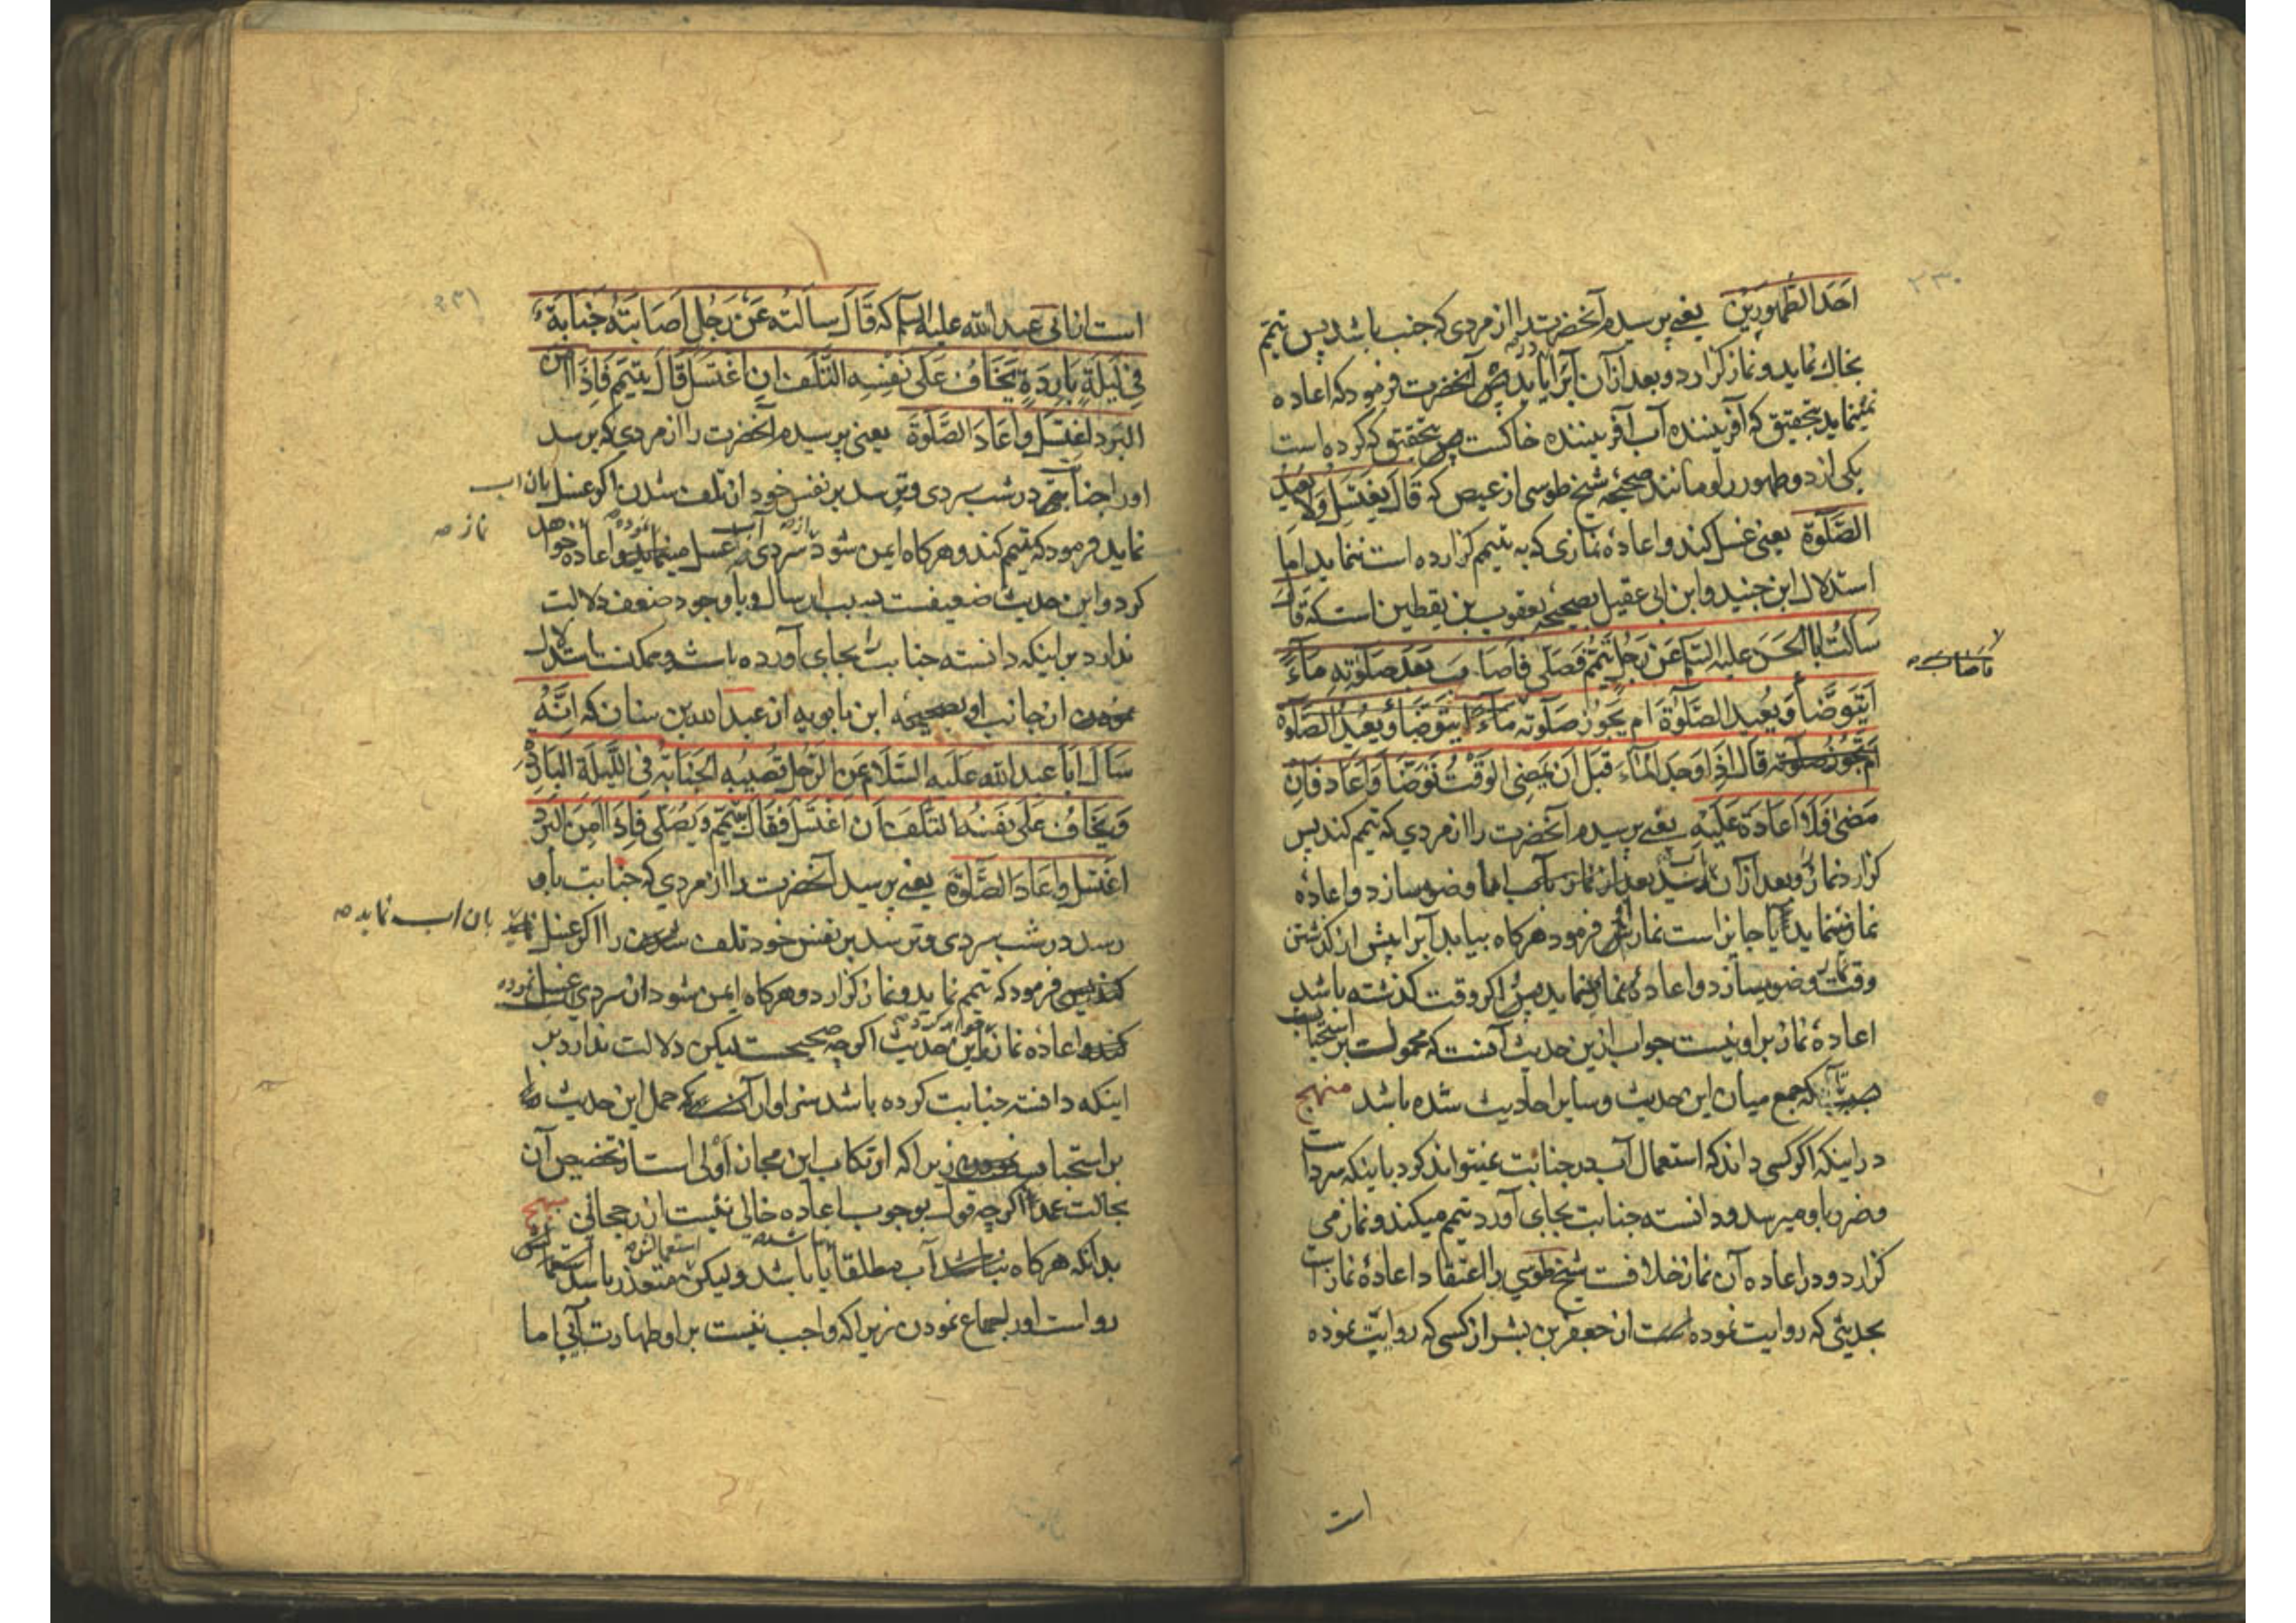 ۲۳۰
احَدَ الطَّهُورَيْنِ يعنى پرسيدم آنحضرت را از مردى كه جنب باشد پس تيمّم
بخاك نمايد و نماز كزارد و بعد از آن آبرا يابد آنحضرت فرمود كه اعاده
نمينمايد بتحقيق كه آفريننده آب آفريننده خاكست پس بتحقيق كه كرده است
يكى از دو طهور را و مانند صحيحه شيخ طوسى از عيص كه قَالَ يَغْتَسِلُ وَلَا يُعِيدُ
الصَّلَوةَ يعنى غسل كند و اعادهٔ نمازى كه به تيمم كزارده است ننمايد اما
استدلال ابن جنيد و ابن ابى عقيل بصحيحه يعقوب بن يقطين است كه قَالَ
سَاَلْتُ اَبَا الْحَسَنِ عليه السّلم عَنْ رَجُلٍ تَيَمَّمَ فَصَلَّى فَاَصَابَ بَعْدَ صَلَوتِهِ مَاءً
اَيَتَوَضَّأُ وَيُعِيدُ الصَّلَوةَ اَم يَجُوزُ صَلَوتُهُ مَاءً ايَتَوَضَّأُ وَيُعِيدُ الصَّلَوةَ
اَم تَجُوزُ صَلَوتُهُ قَالَ اِذَا وَجَدَ الْمَاءَ قَبْلَ اَنْ يَمْضِىَ الْوَقْتُ تَوَضَّأَ وَاَعَادَ فَاِنْ
مَضَى فَلَا اِعَادَةَ عَلَيْهِ يعنى پرسيدم آنحضرت را از مردى كه تيمم كند پس
كزارد نماز و بعد از آن رسد بعد از نماز بآب ايا وضو سازد و اعادهٔ
نماز مينمايد آيا جايز است نمازش فرمود هركاه بيابد آبرا پيش از كذشتن
وقت نماز وضو ميسازد و اعادهٔ نماز مينمايد پس اكر وقت كذشته باشد
اعادهٔ نماز بر او نيست جواب ازين حديث آنست كه محمولست بر استحباب
تا كه جمع ميان اين حديث و ساير احاديث شده باشد منهج
در اينكه اكر كسى داند كه استعمال آب در جنابت نميتواند كرد با اينكه سرد است
و ضرر باو ميرسد و دانسته جنابت بجاى آورد تيمم ميكند و نماز مى
كزارد و در اعاده آن نماز خلافست شيخ طوسى را اعتقاد اعادهٔ نماز است
بحديثى كه روايت نموده است از جعفر بن بشير از كسى كه روايت نموده
است
است از ابى عبد الله عليه السلم كه قَالَ سَاَلْتُهُ عَنْ رَجُلٍ اَصَابَتْهُ جَنَابَةٌ
فِى لَيْلَةٍ بَارِدَةٍ يَخَافُ عَلَى نَفْسِهِ التَّلَفَ اِنِ اغْتَسَلَ قَالَ يَتَيَمَّمُ فَاِذَا اَمِنَ
الْبَرْدَ اغْتَسَلَ وَاَعَادَ الصَّلَوةَ يعنى پرسيدم آنحضرت را از مردى كه برسد
او را جنابت در شب سردى و ترسد بر نفس خود از تلف شدن اكر غسل بان اب
نمايد فرمود كه تيمم كند و هركاه ايمن شود از سردى آب غسل نموده و اعاده نماز خواهد
كرد و اين حديث ضعيفست بسبب ارسال و با وجود ضعف دلالت
ندارد بر اينكه دانسته جنابت بجاى آورده باشد و ممكنست استدلال
نمودن از جانب او بصحيحه ابن بابويه از عبد الله بن سنان كه اِنَّهُ
سَاَلَ اَبَا عَبْدِ اللهِ عَلَيْهِ السَّلَامُ عَنِ الرَّجُلِ تُصِيبُهُ الْجَنَابَةُ فِى اللَّيْلَةِ الْبَارِدَةِ
وَيَخَافُ عَلَى نَفْسِهِ التَّلَفَ اَنِ اغْتَسَلَ فَقَالَ يَتَيَمَّمُ وَيُصَلِّى فَاِذَا اَمِنَ الْبَرْدَ
اغْتَسَلَ وَاَعَادَ الصَّلَوةَ يعنى پرسيد آنحضرت را از مردى كه جنابت باو
رسد در شب سردى و ترسد بر نفس خود تلف شدن را اكر غسل بان اب نمايد
فرمود كه تيمم نمايد و نماز كزارد و هركاه ايمن شود از سردى غسل نموده
اعادهٔ نماز خواهد كرد اين حديث اكرچه صحيحست ليكن دلالت ندارد بر
اينكه دانسته جنابت كرده باشد سزاوار آنست كه حمل اين حديث
بر استحباب نمودن زيرا كه ارتكاب اين مجاز اَولى است از تخصيص آن
بحالت عمد اكرچه قول بوجوب اعاده خالى نيست از رجحانى منهج
بدانكه هركاه آب مطلقا يا باشد و ليكن متعذر باشد استعمالش
روا است او را جماع نمودن زيرا كه واجب نيست بر او طهارت آبى اما